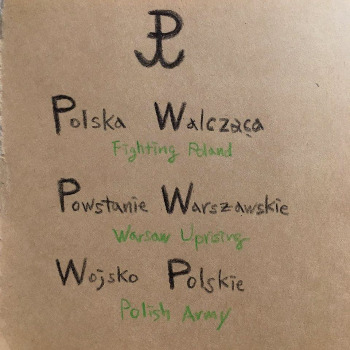 Polska Walcząca
Fighting Poland
Powstanie Warszawskie
Warsaw Uprising
Wojsko Polskie
Polish Army